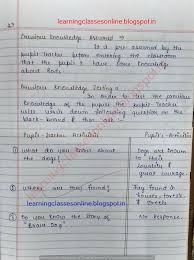 learningclassesonline.blogspot.in
Previous Knowledge Assumed :-
It is pre assumed by the
pupil-teacher before entering the classroom
that the pupil's have some knowledge
about Dogs.
Previous Knowledge Testing :-
In order to test the previous
Knowledge of the pupils the pupil-teacher
will write down following question on the
black-board & then ask :-
Pupil-Teacher Activities
Pupil's Activities
① what do you know about
the dogs?
Dogs are known
to their
loyality &
great courage.
② where are they found?
They found in
forests &
streets.
③ Do you know the story of
"Brave Dog"
No Response.
learningclassesonline.blogspot.in